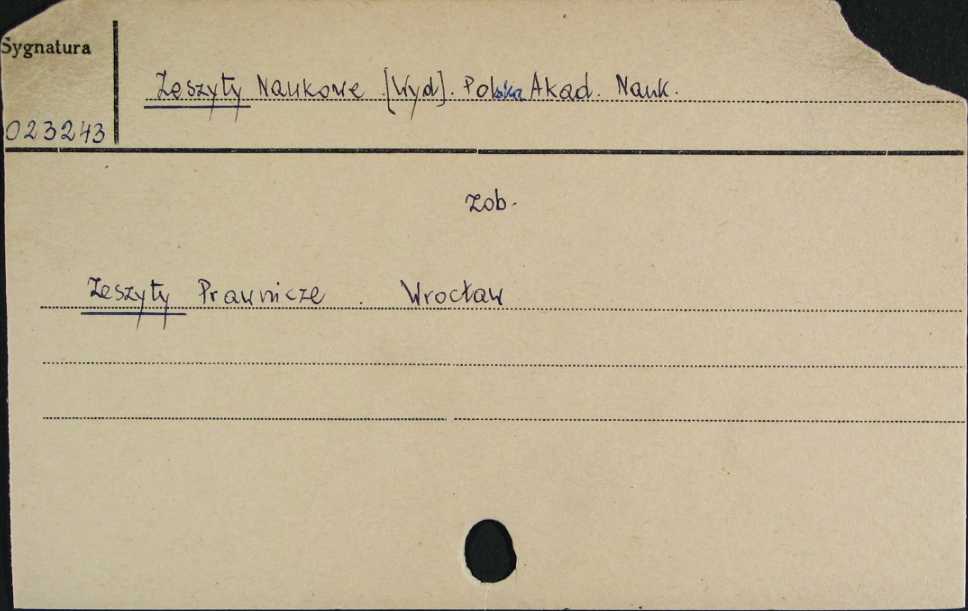 Sygnatura
Zeszyty Naukowe. [Wyd]. Polska Akad. Nauk.
023243
zob.
Zeszyty Prawnicze. Wrocław